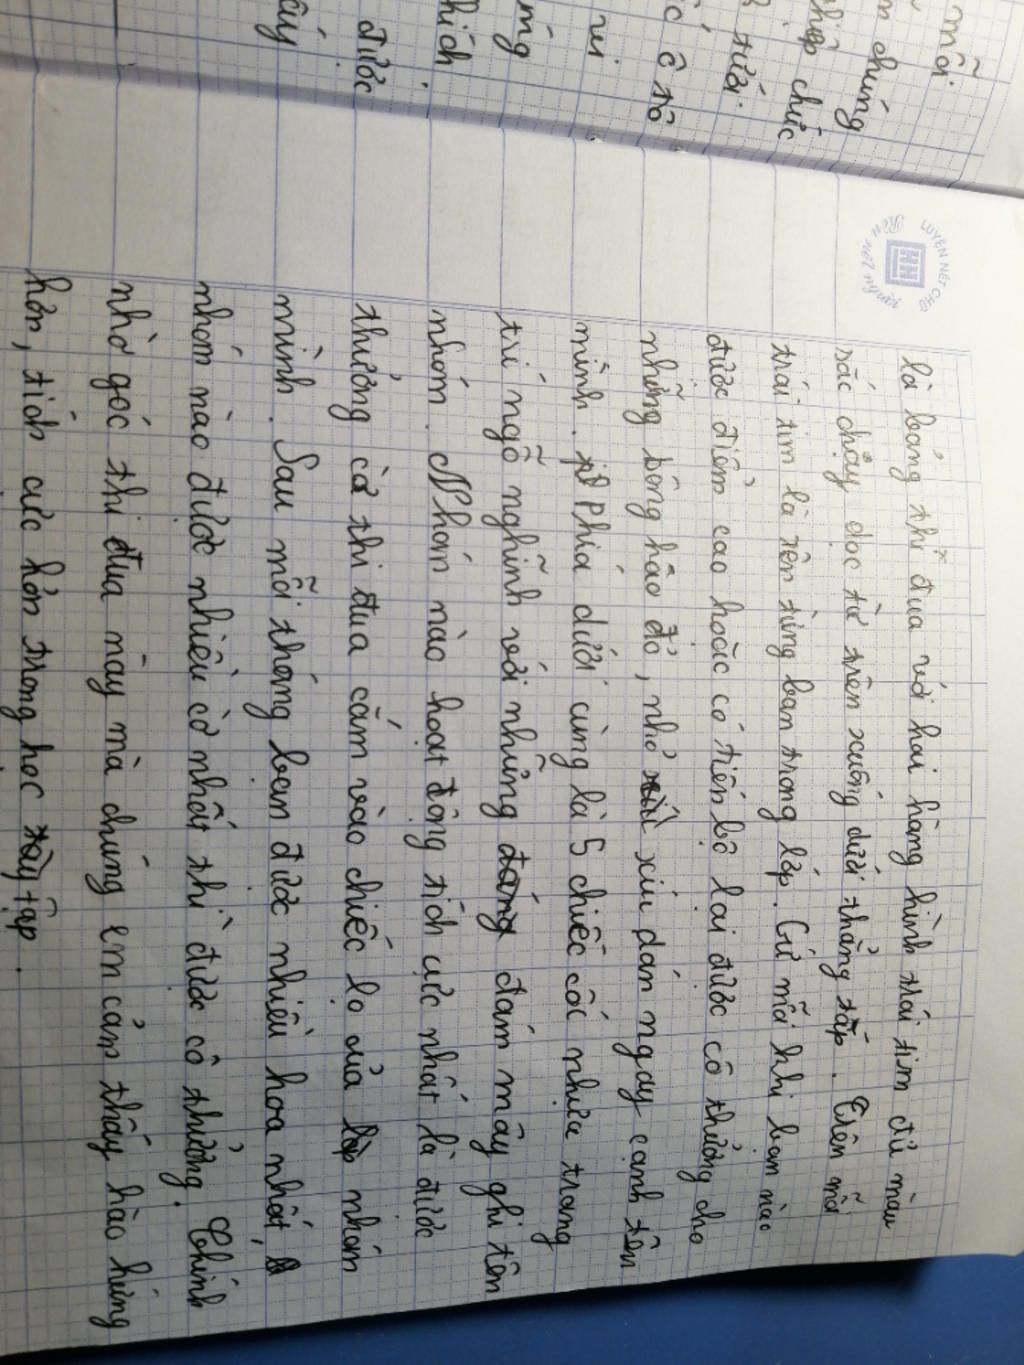 mỗi
n chúng
phép chức
tười.
ốc ô tô
ni
ứng
hích
được
ấy
LUYỆN NÉT CHỮ
Rèn nết người
HH
là bảng thi đua với hai hàng hình trái tim đủ màu
sắc chạy dọc từ trên xuống dưới thẳng tắp. Trên mỗi
trái tim là tên từng bạn trong lớp. Cứ mỗi khi bạn nào
được điểm cao hoặc có tiến bộ lại được cô thưởng cho
những bông hoa đỏ, nhỏ xíu dán ngay cạnh tên
mình. Phía dưới cùng là 5 chiếc cốc nhựa trang
trí ngộ nghĩnh với những đám mây ghi tên
nhóm. Nhóm nào hoạt động tích cực nhất là được
thưởng cờ thi đua cắm vào chiếc lọ của nhóm
mình. Sau mỗi tháng bạn được nhiều hoa nhất
nhóm nào được nhiều cờ nhất thì được cô thưởng. Chính
nhờ góc thi đua này mà chúng em cảm thấy hào hứng
hơn, tích cực hơn trong học tập.